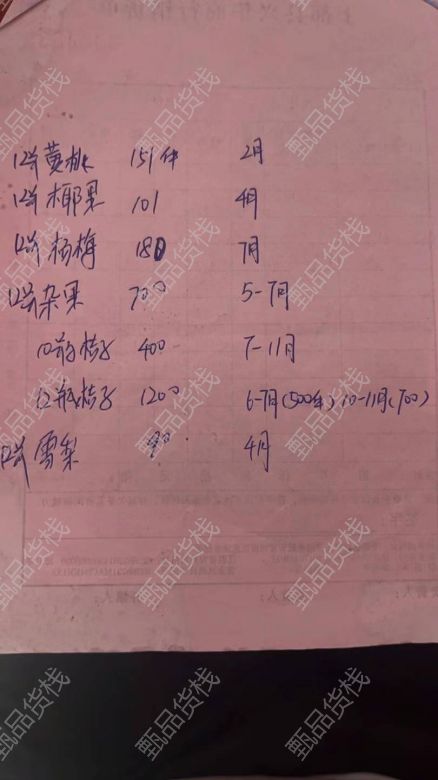 12瓶黄桃 151件 2月
12瓶椰果 101 4月
12瓶杨梅 180 7月
12瓶杂果 700 5-7月
10瓶桔子 400 7-11月
12瓶桔子 1200 6-7月(500件) 10-11月(700)
12瓶雪梨 90 4月
甄品货栈